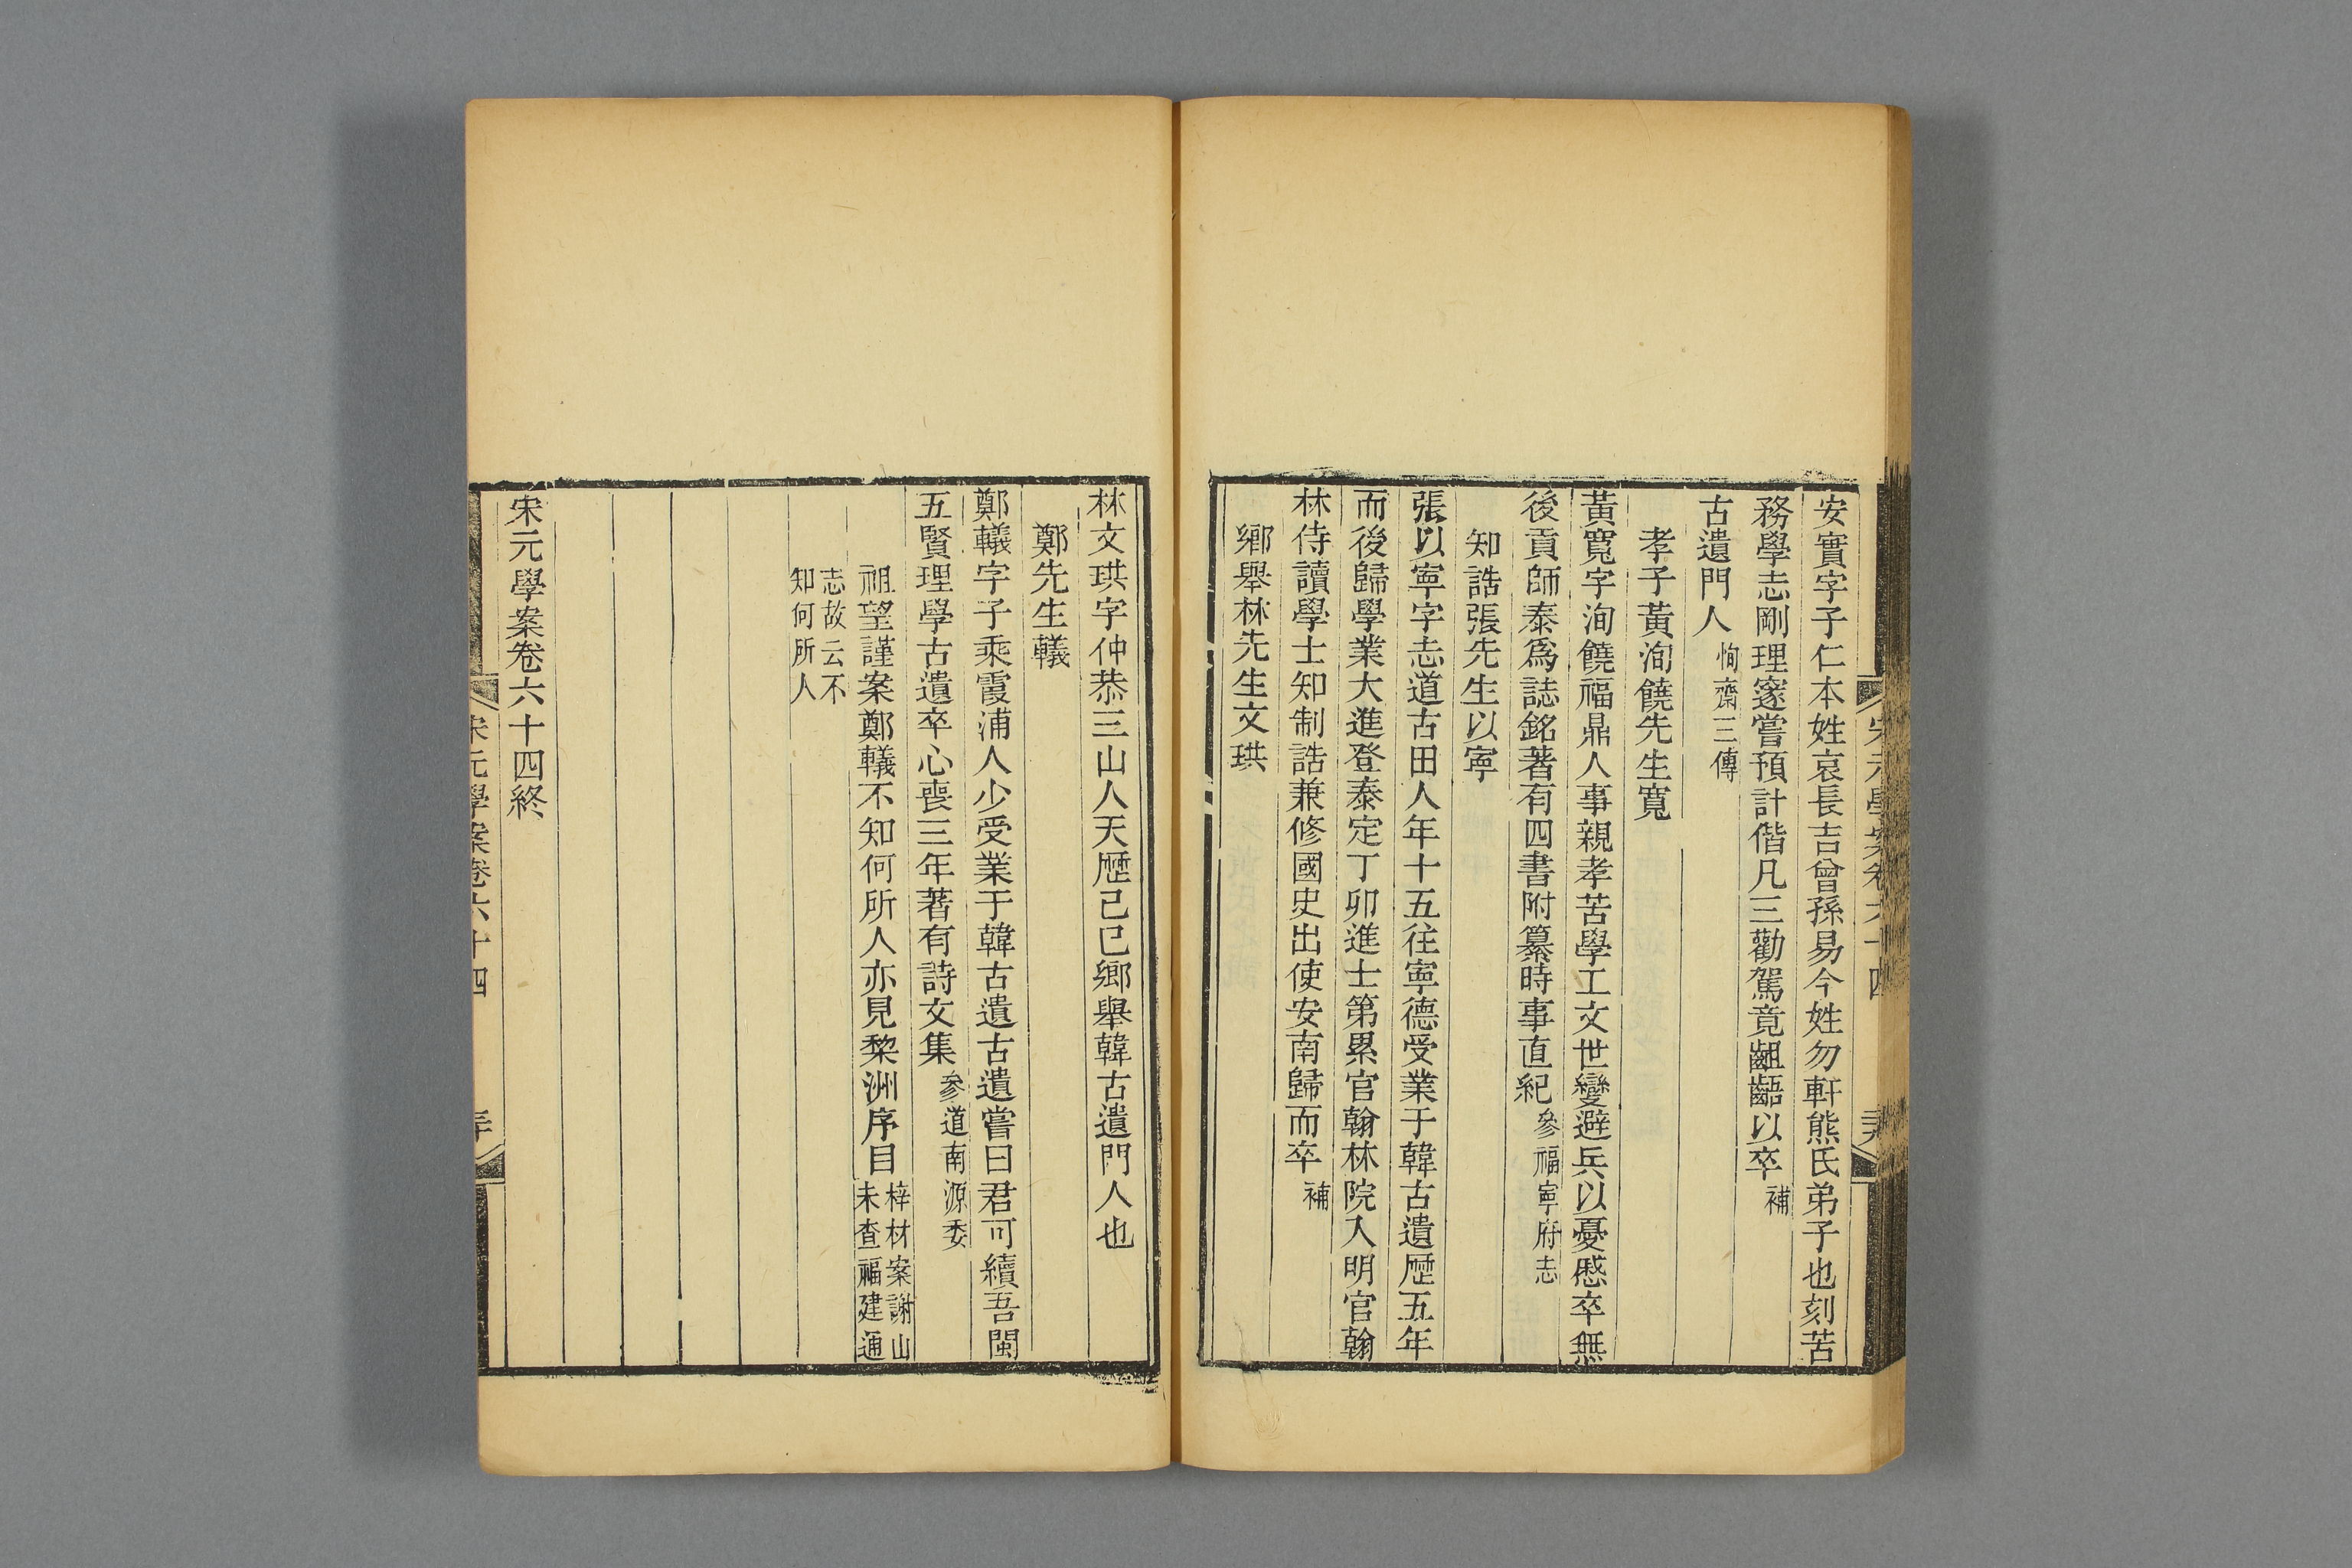 安實字子仁本姓哀長吉曾孫易今姓勿軒熊氏弟子也刻苦
務學志剛理邃嘗預計偕凡三勸駕竟齟齬以卒補
古遺門人恂齋三傳
孝子黃洵饒先生寬
黃寬字洵饒福鼎人事親孝苦學工文世變避兵以憂慼卒無
後貢師泰爲誌銘著有四書附纂時事直紀參福寧府志
知誥張先生以寧
張以寧字志道古田人年十五往寧德受業于韓古遺歷五年
而後歸學業大進登泰定丁卯進士第累官翰林院入明官翰
林侍讀學士知制誥兼修國史出使安南歸而卒補
鄉舉林先生文珙
林文珙字仲恭三山人天歷己巳鄉舉韓古遺門人也
鄭先生轙
鄭轙字子乘霞浦人少受業于韓古遺古遺嘗曰君可續吾閩
五賢理學古遺卒心喪三年著有詩文集參道南源委
祖望謹案鄭轙不知何所人亦見棃洲序目梓材案謝山
未查福建通
志故云不
知何所人
宋元學案卷六十四終
宋元學案卷六十四